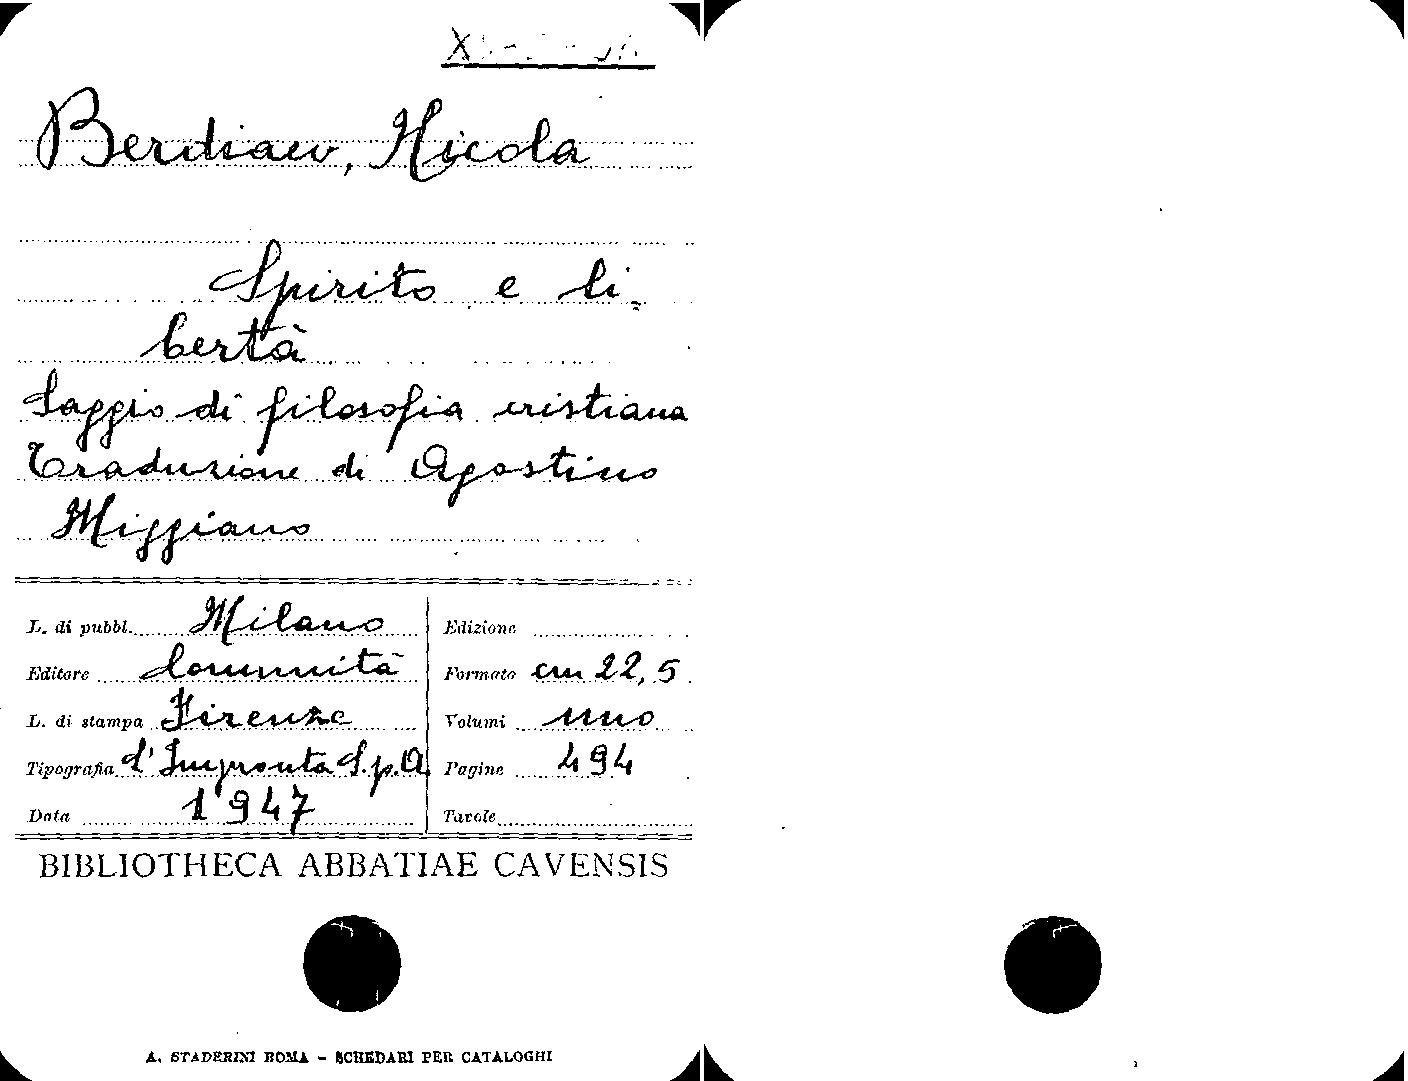 Berdiaev, Nicola
Spirito e li=
bertà
Saggio di filosofia cristiana
Traduzione di Agostino
Miggiano
L. di pubbl. Milano
Editore Comunità
L. di stampa Firenze
Tipografia L'Impronta S.p.A.
Data 1947
Edizione
Formato cm 22,5
Volumi uno
Pagine 494
Tavole
BIBLIOTHECA ABBATIAE CAVENSIS
A. STADERINI ROMA - SCHEDARI PER CATALOGHI